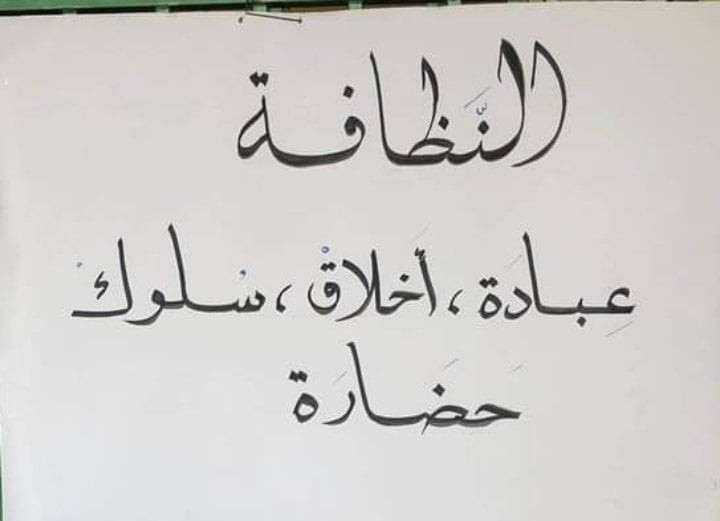 النَّظافة
عِبادَة، أَخلاقْ، سُلوكْ
حَضَارَة